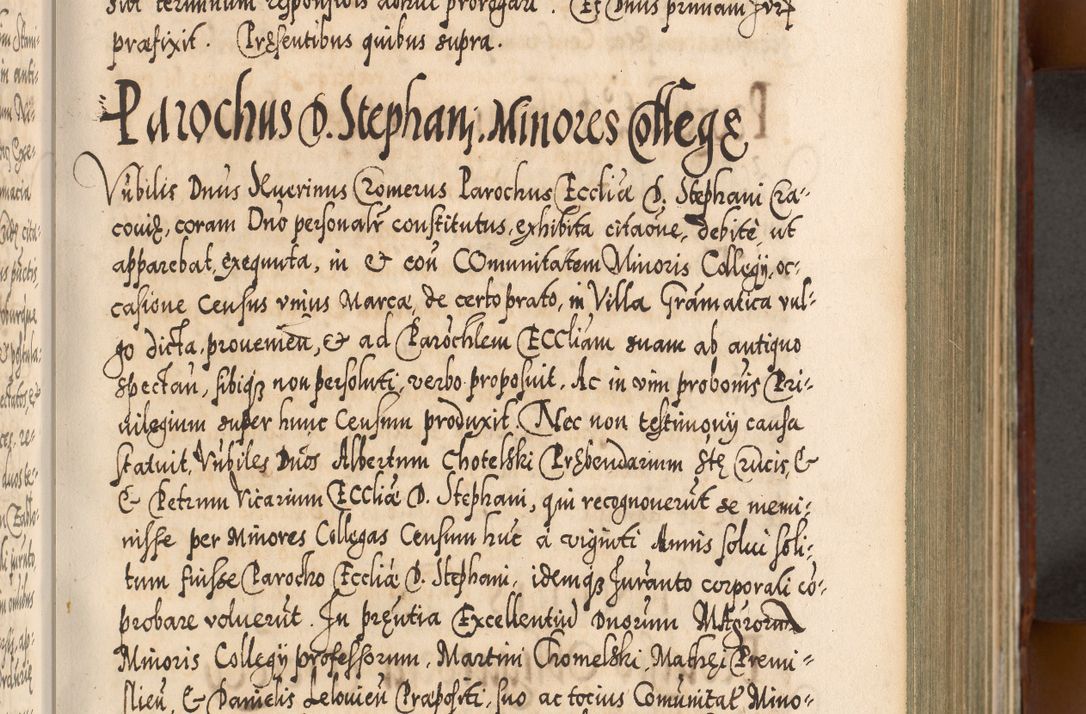 dicit terminum responsionis adhuc prorogari. Et Dnus primam Jurj
præfixit. Pręsentibus quibus supra.
Parochus D. Stephanj. Minores Collegę
Vnbilis Dnus Seuerinus Cromerus Parochus Eccliæ D. Stephani Cra-
couię, coram Dno personalr constitutus, exhibita citaoue, debitè, ut
apparebat, exequuta, in & con Comunitatem Minoris Collegij, oc-
casione Census vnius Marcæ, de certo prato, in Villa Gramatica vul-
go dicta, proueniẽn, & ad Parochlem Eccliam suam ab antiquo
spectan, sibiqȝ non persoluti, verbo proposuit. Ac in vim probonis Pri-
uilegium super hunc Censum produxit. Nec non testimonij causa
statuit, Vnbiles Dnos Albertum Chotelski Prębendarium Stę Crucis, &
& Petrum Vicarium Eccliæ D. Stephani, qui recognouerũt se memi-
nisse per Minores Collegas Censum hũc à viginti Annis solui soli-
tum fuisse Parocho Eccliæ D. Stephani, idemqȝ Juranto corporali co-
probare voluerũt. In pręntia Excellentiũ Dnorum Mgrorum
Minoris Collegij professorum, Martini Chomelski, Mathęi Premi-
slien, & Danielis Lelouien Præpositi, suo ac tocius Comunitat Mino-